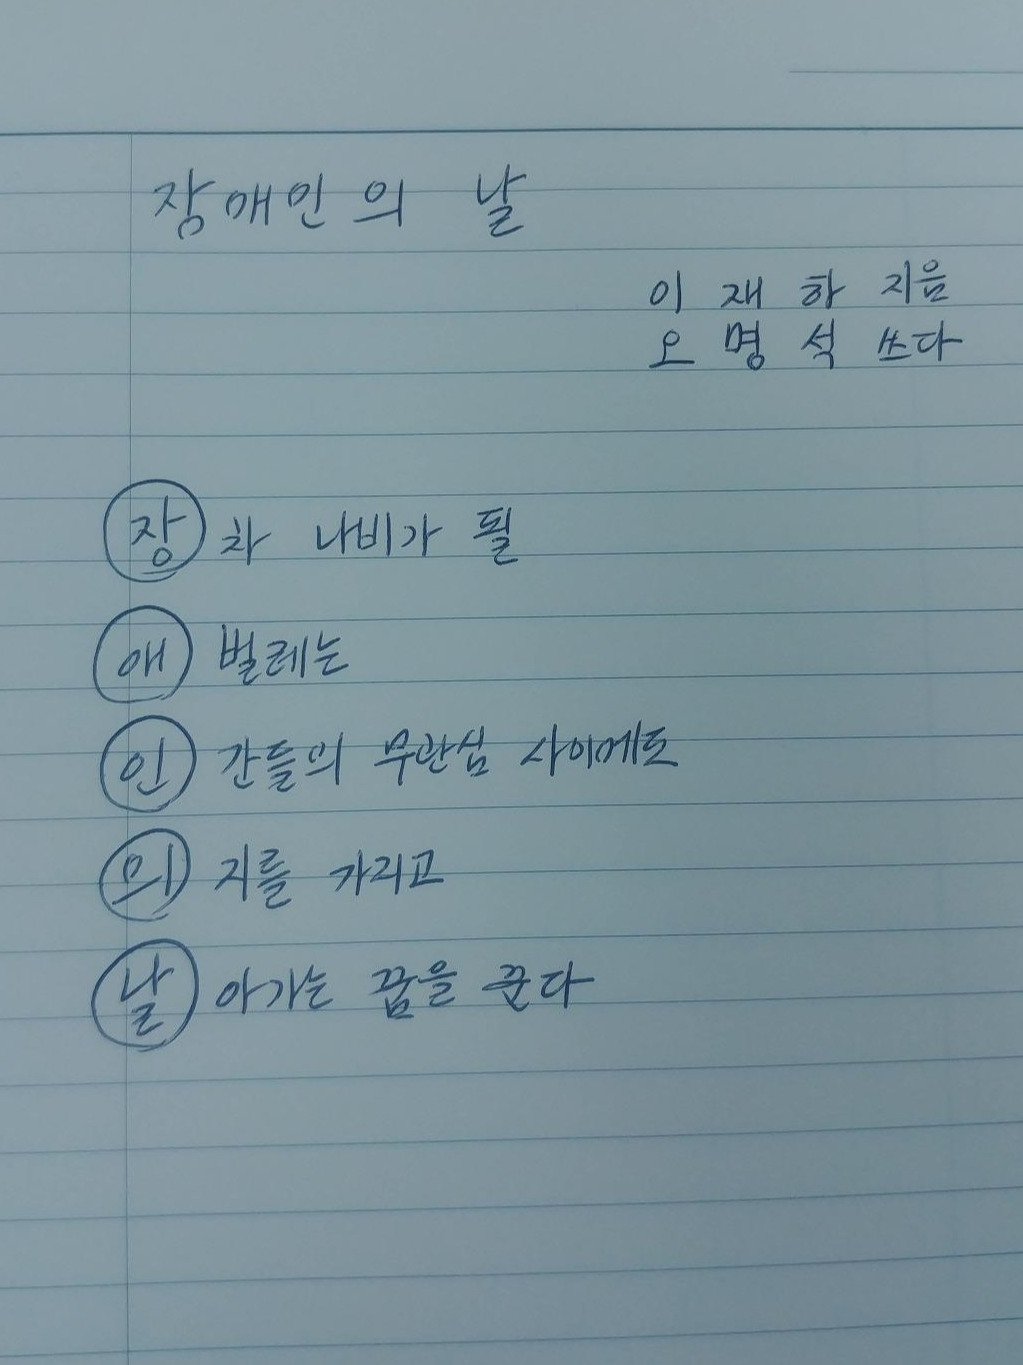 장애인의 날
이재하 지음
오명석 쓰다
장차 나비가 될
애벌레는
인간들의 무관심 사이에도
의지를 가리고
날아가는 꿈을 꾼다